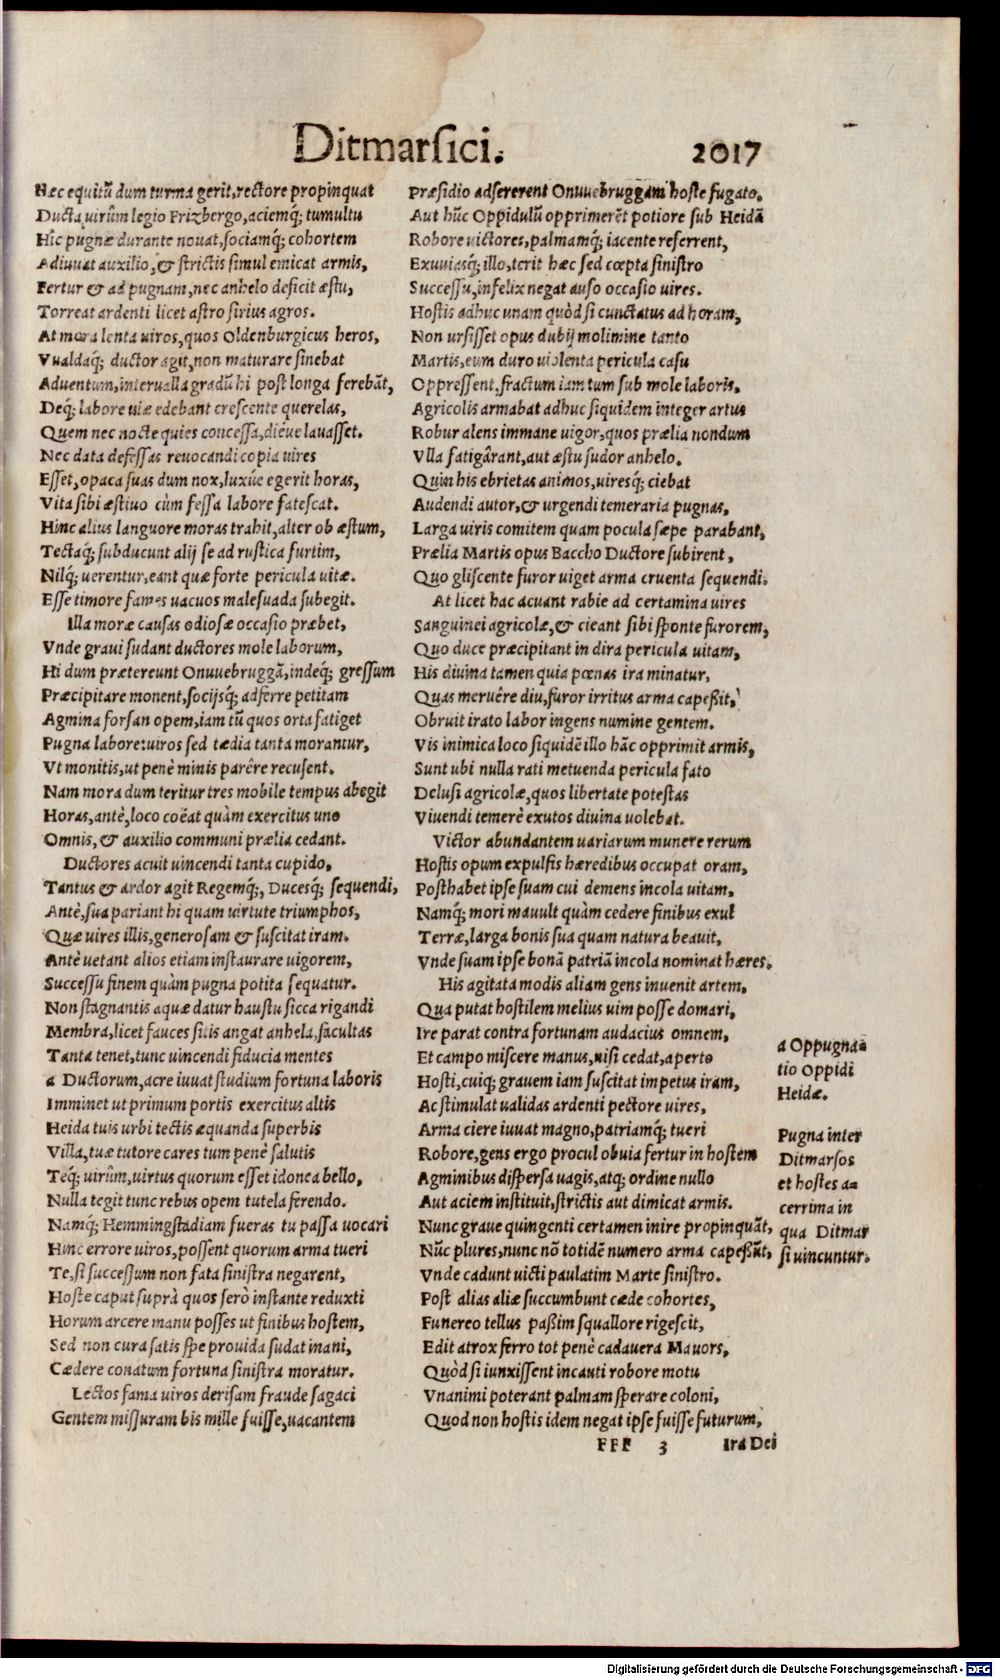 Ditmarsici. 2017
Hæc equitũ dum turma gerit, rectore propinquat
Ducta uirûm legio Frizbergo, aciemq́; tumultu
Hîc pugnæ durante nouat, sociamq́; cohortem
Adiuuat auxilio, & strictis simul emicat armis,
Fertur & ad pugnam, nec anhelo deficit æstu,
Torreat ardenti licet astro sirius agros.
At mora lenta uiros, quos Oldenburgicus heros,
Vualdaq́; ductor agit, non maturare sinebat
Aduentum, interualla gradũ hi post longa ferebãt,
Deq́; labore uiæ edebant crescente querelas,
Quem nec nocte quies concessa, diéue lauasset.
Nec data defessas reuocandi copia uires
Esset, opaca suas dum nox, luxúe egerit horas,
Vita sibi æstiuo cùm fessa labore fatescat.
Hinc alius languore moras trahit, alter ob æstum,
Tectaq́; subducunt alij se ad rustica furtim,
Nilq́; uerentur, eant quæ forte pericula uitæ.
Esse timore fames uacuos malesuada subegit.
Illa moræ causas odiosæ occasio præbet,
Vnde graui sudant ductores mole laborum,
Hi dum prætereunt Onuuebruggã, indeq́; gressum
Præcipitare monent, socijsq́; adferre petitam
Agmina forsan opem, iam tũ quos orta fatiget
Pugna labore: uiros sed tædia tanta morantur,
Vt monitis, ut penè minis parêre recusent.
Nam mora dum teritur tres mobile tempus abegit
Horas, antè, loco coëat quàm exercitus uno
Omnis, & auxilio communi prælia cedant.
Ductores acuit uincendi tanta cupido,
Tantus & ardor agit Regemq́;, Ducesq́; sequendi,
Antè, sua pariant hi quam uirtute triumphos,
Quæ uires illis, generosam & suscitat iram.
Antè uetant alios etiam instaurare uigorem,
Successu finem quàm pugna potita sequatur.
Non stagnantis aquæ datur haustu sicca rigandi
Membra, licet fauces sitis angat anhela, facultas
Tanta tenet, tunc uincendi fiducia mentes
a Ductorum, acre iuuat studium fortuna laboris
Imminet ut primum portis exercitus altis
Heida tuis urbi tectis æquanda superbis
Villa, tuæ tutore cares tum penè salutis
Teq́; uirûm, uirtus quorum esset idonea bello,
Nulla tegit tunc rebus opem tutela ferendo.
Namq́; Hemmingstadiam fueras tu passa uocari
Hinc errore uiros, possent quorum arma tueri
Te, si successum non fata sinistra negarent,
Hoste caput suprà quos serò instante reduxti
Horum arcere manu posses ut finibus hostem,
Sed non cura satis spe prouida sudat inani,
Cædere conatum fortuna sinistra moratur.
Lectos fama uiros derisam fraude sagaci
Gentem missuram bis mille fuisse, uacantem
Præsidio adsererent Onuuebruggam hoste fugato.
Aut hũc Oppidulũ opprimerẽt potiore sub Heidã
Robore uictores, palmamq́; iacente referrent,
Exuuiasq́; illo, terit hæc sed cœpta sinistro
Successu, infelix negat auso occasio uires.
Hostis adhuc unam quòd si cunctatus ad horam,
Non ursisset opus dubij molimine tanto
Martis, eum duro uiolenta pericula casu
Oppressent, fractum iam tum sub mole laboris,
Agricolis armabat adhuc siquidem integer artus
Robur alens immane uigor, quos prælia nondum
Vlla fatigârant, aut æstu sudor anhelo.
Quin his ebrietas animos, uiresq́; ciebat
Audendi autor, & urgendi temeraria pugnas,
Larga uiris comitem quam pocula sæpe parabant,
Prælia Martis opus Baccho Ductore subirent,
Quo gliscente furor uiget arma cruenta sequendi.
At licet hac acuant rabie ad certamina uires
Sanguinei agricolæ, & cieant sibi sponte furorem,
Quo duce præcipitant in dira pericula uitam,
His diuina tamen quia pœnas ira minatur,
Quas meruêre diu, furor irritus arma capeßit,
Obruit irato labor ingens numine gentem.
Vis inimica loco siquidẽ illo hãc opprimit armis,
Sunt ubi nulla rati metuenda pericula fato
Delusi agricolæ, quos libertate potestas
Viuendi temerè exutos diuina uolebat.
Victor abundantem uariarum munere rerum
Hostis opum expulsis hæredibus occupat oram,
Posthabet ipse suam cui demens incola uitam,
Namq́; mori mauult quàm cedere finibus exul
Terræ, larga bonis sua quam natura beauit,
Vnde suam ipse bonã patriã incola nominat hæres.
His agitata modis aliam gens inuenit artem,
Qua putat hostilem melius uim posse domari,
Ire parat contra fortunam audacius omnem,
Et campo miscere manus, nisi cedat, aperto
Hosti, cuiq; grauem iam suscitat impetus iram,
Ac stimulat ualidas ardenti pectore uires,
Arma ciere iuuat magno, patriamq́; tueri
Robore, gens ergo procul obuia fertur in hostem
Agminibus dispersa uagis, atq; ordine nullo
Aut aciem instituit, strictis aut dimicat armis.
Nunc graue quingenti certamen inire propinquãt,
Nũc plures, nunc nõ totidẽ numero arma capeßũt,
Vnde cadunt uicti paulatim Marte sinistro.
Post alias aliæ succumbunt cæde cohortes,
Funereo tellus paßim squallore rigescit,
Edit atrox ferro tot penè cadauera Mauors,
Quòd si iunxissent incauti robore motu
Vnanimi poterant palmam sperare coloni,
Quod non hostis idem negat ipse fuisse futurum,
FFF 3 Ira Dei
a Oppugna=
tio Oppidi
Heidæ.
Pugna inter
Ditmarsos
et hostes a=
cerrima in
qua Ditmar
si uincuntur.
Digitalisierung gefördert durch die Deutsche Forschungsgemeinschaft - DFG